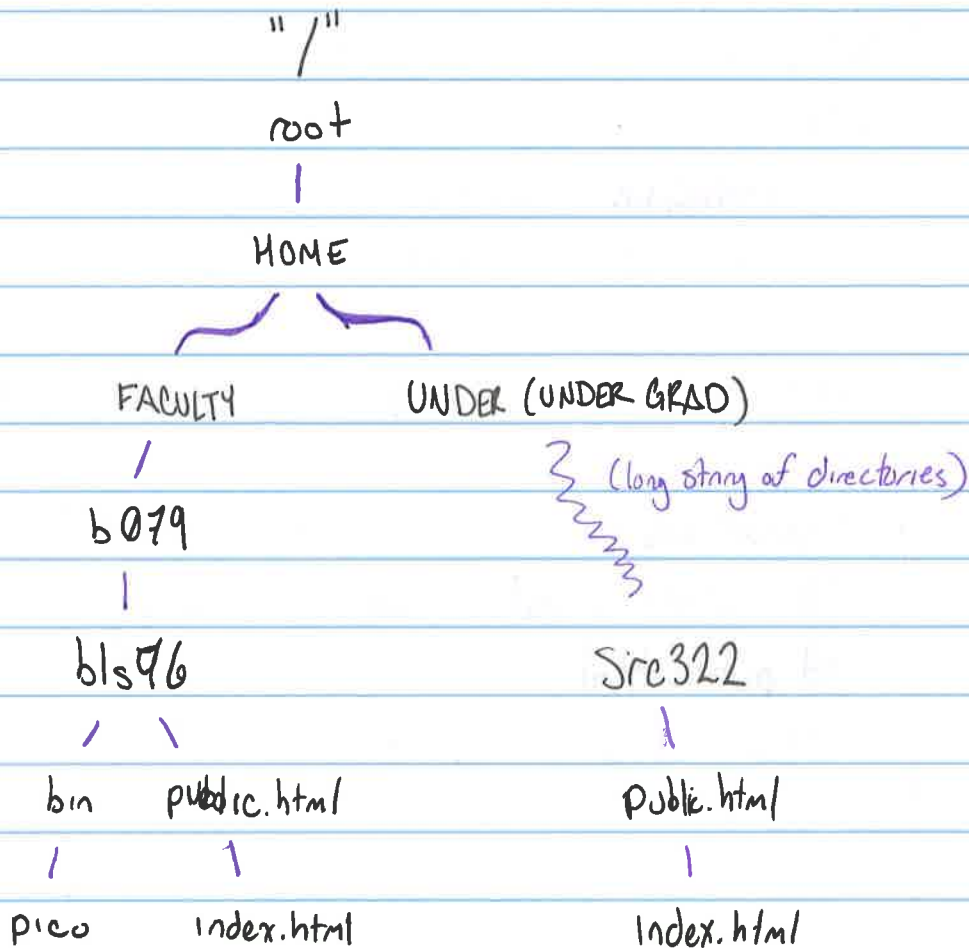 "/"
root
HOME
FACULTY UNDER (UNDER GRAD)
(long string of directories)
b079
bls96 Src322
bin public.html public.html
pico index.html index.html